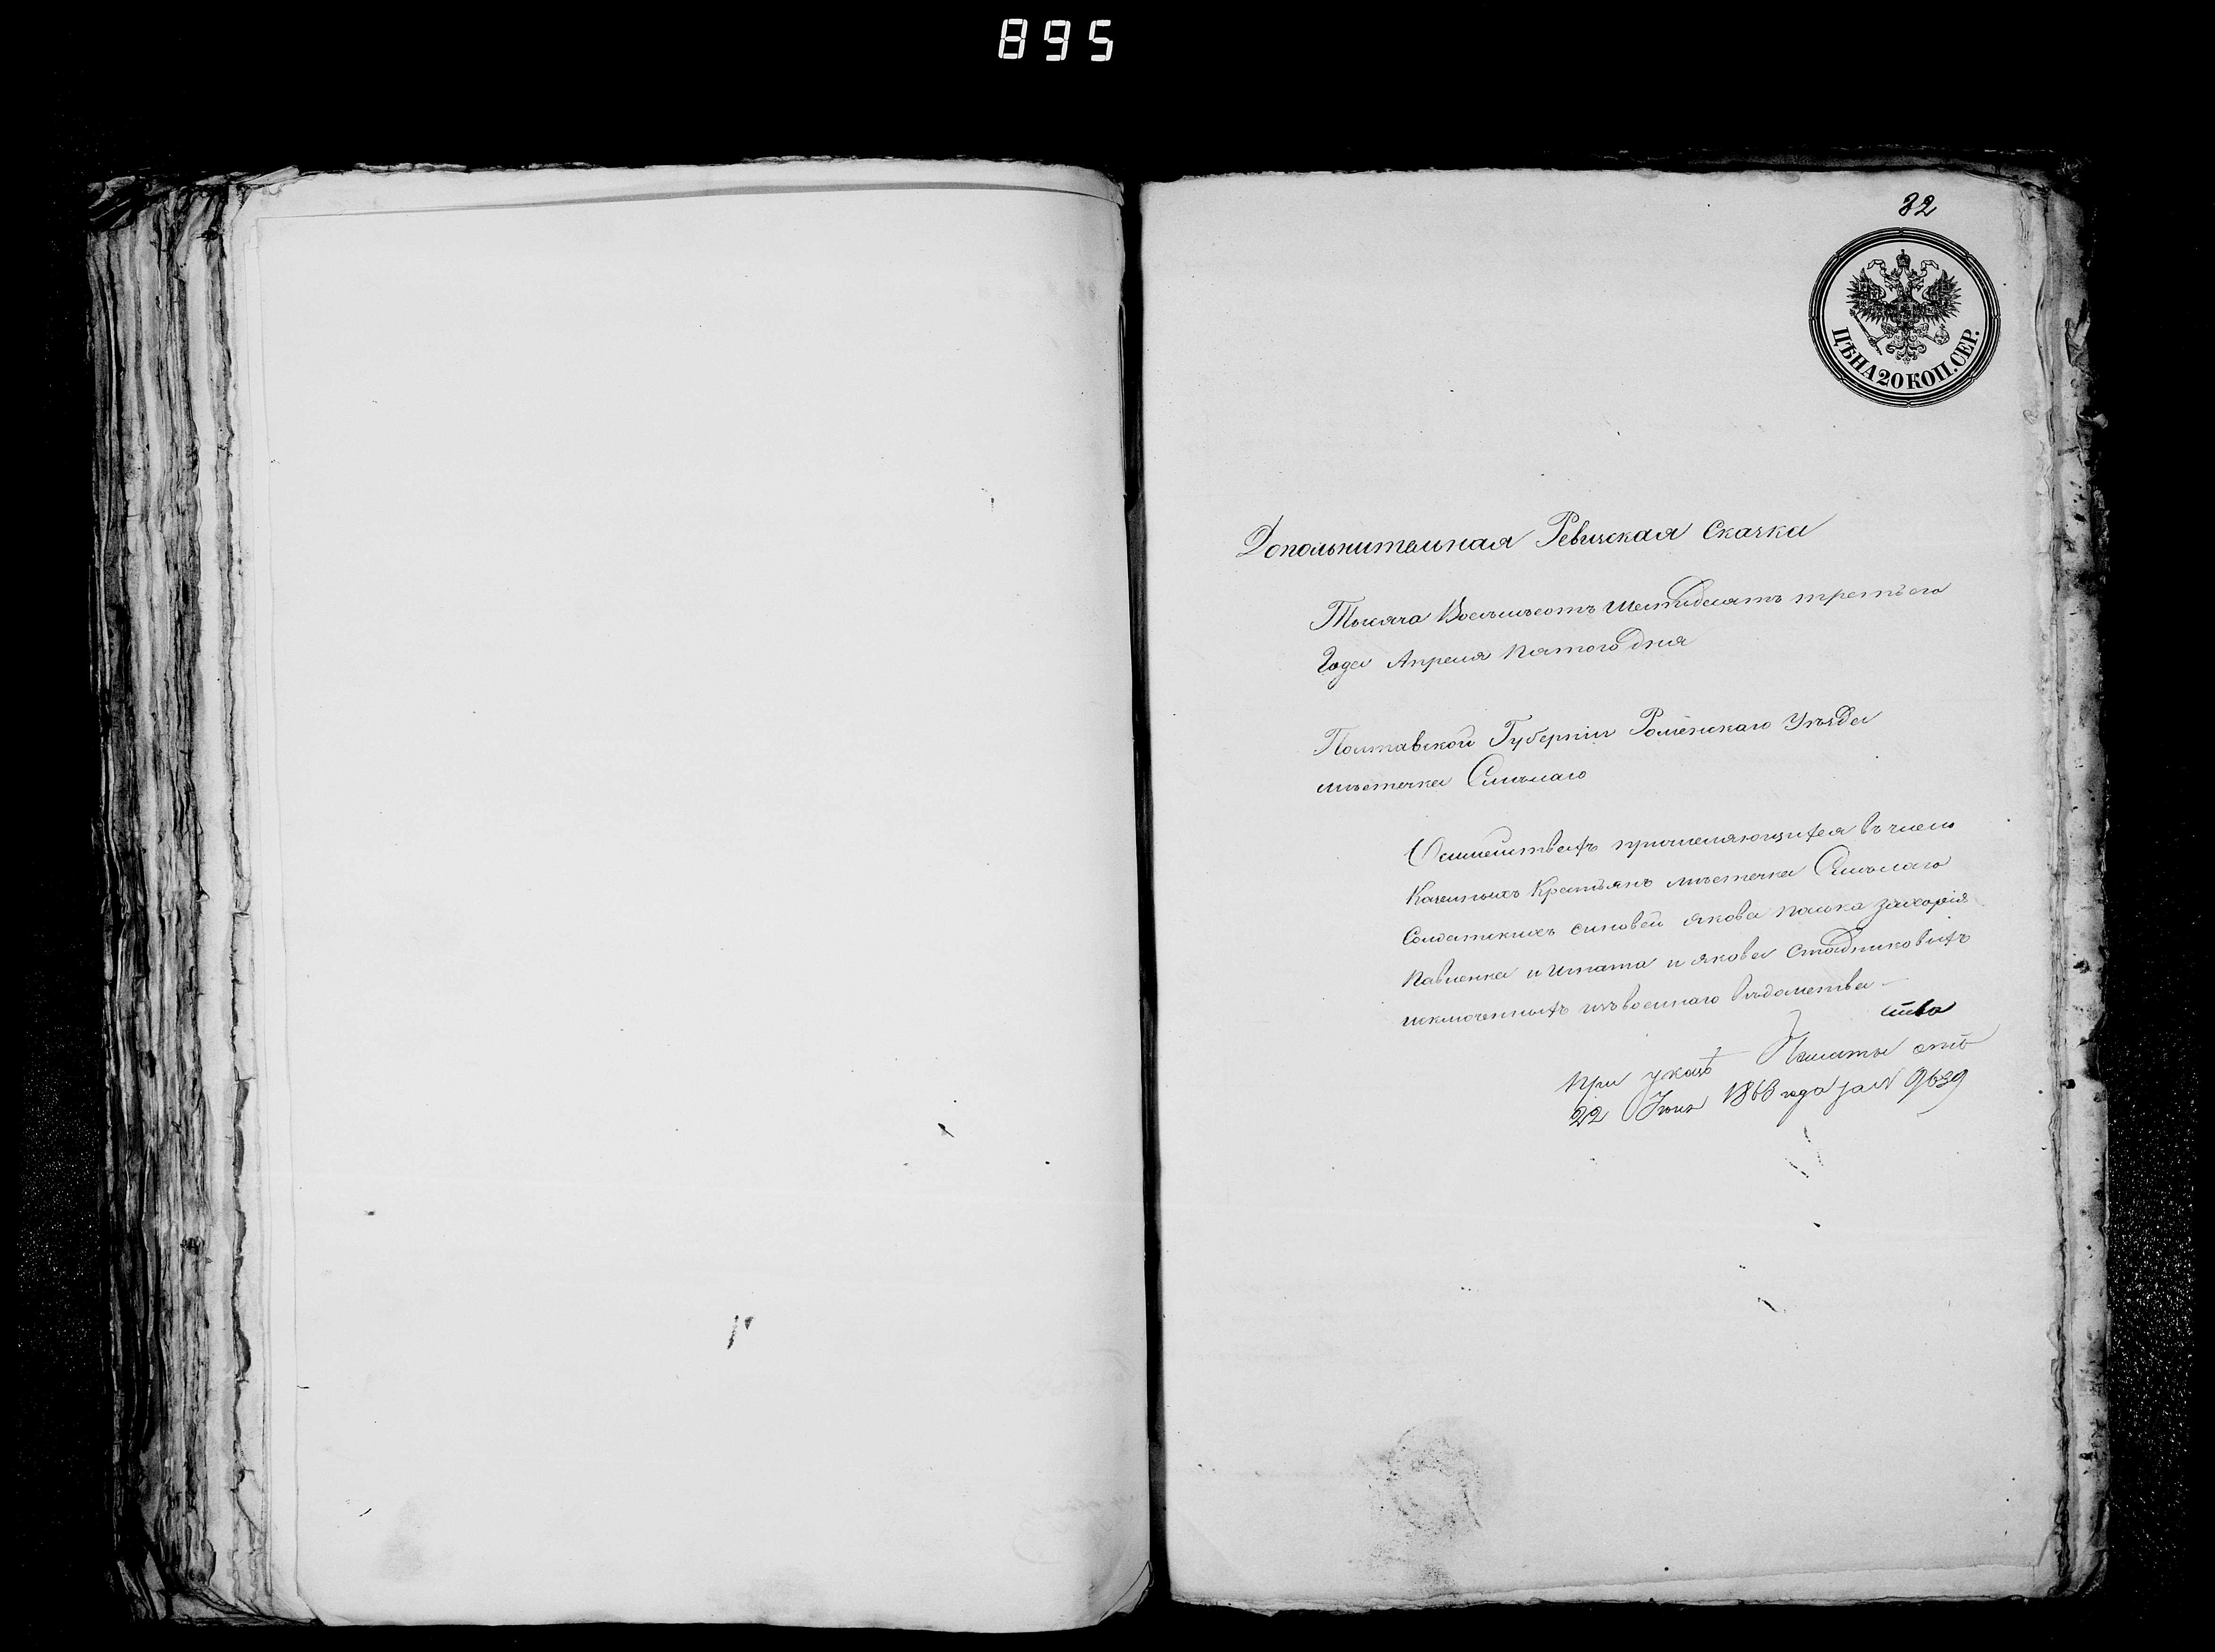 895
32
ЦѢНА 20 КОП. СЕР.
Дополнительная Ревизская Сказка
Тысяча Восемьсотъ шестьдесятъ третьего
Года Апреля пятого дня
Полтавской Губерніи Роменскаго Уезда
местечка Смелаго
О семействахъ причисляющихся въ число
Казенныхъ Крестьянъ местечка Смелаго
Солдатскихъ сыновей Якова Захарія
Павленка и Игната и Якова Стадниковыхъ
исключенныхъ изъ военнаго ведомства
При указе Палаты отъ
22 Іюня 1863 года за № 9639